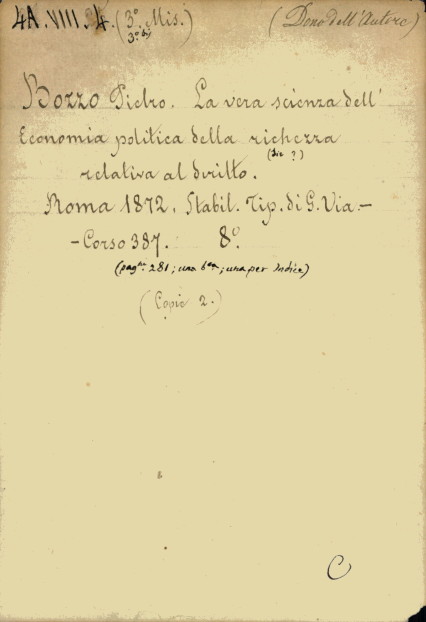 4A.VIII.4. (3º. Mis.) (Dono dell'Autore)
3º bis
Bozzo Pietro. La vera scienza dell'
Economia politica della richezza
(sic?)
relativa al diritto.
Roma 1872. Stabil. Tip. di G. Via. -
- Corso 387. 8º.
(pagne. 281; una bca; una per indice)
(Copie 2.)
C